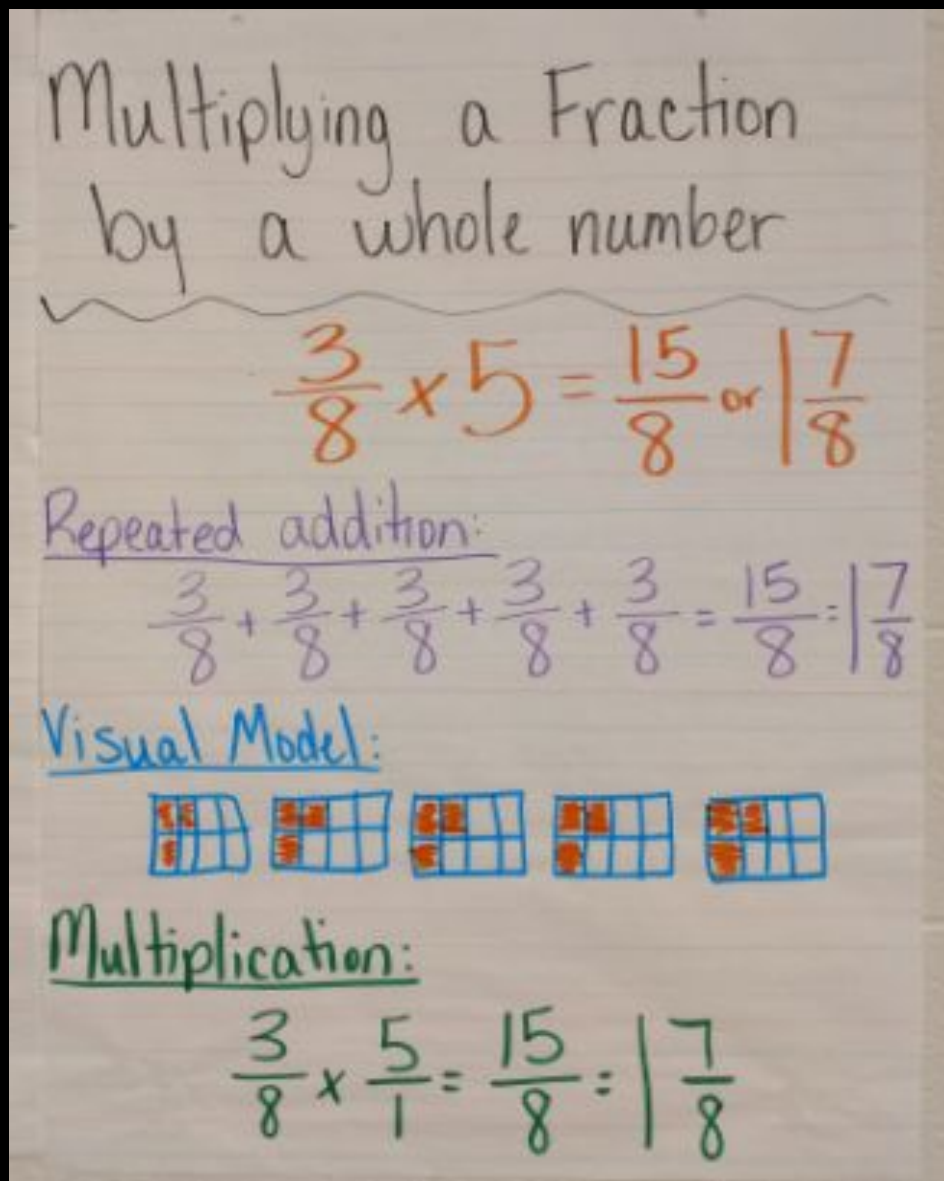 Multiplying a Fraction
by a whole number
3/8 × 5 = 15/8 or 1 7/8
Repeated addition:
3/8 + 3/8 + 3/8 + 3/8 + 3/8 = 15/8 = 1 7/8
Visual Model:
Multiplication:
3/8 × 5/1 = 15/8 = 1 7/8